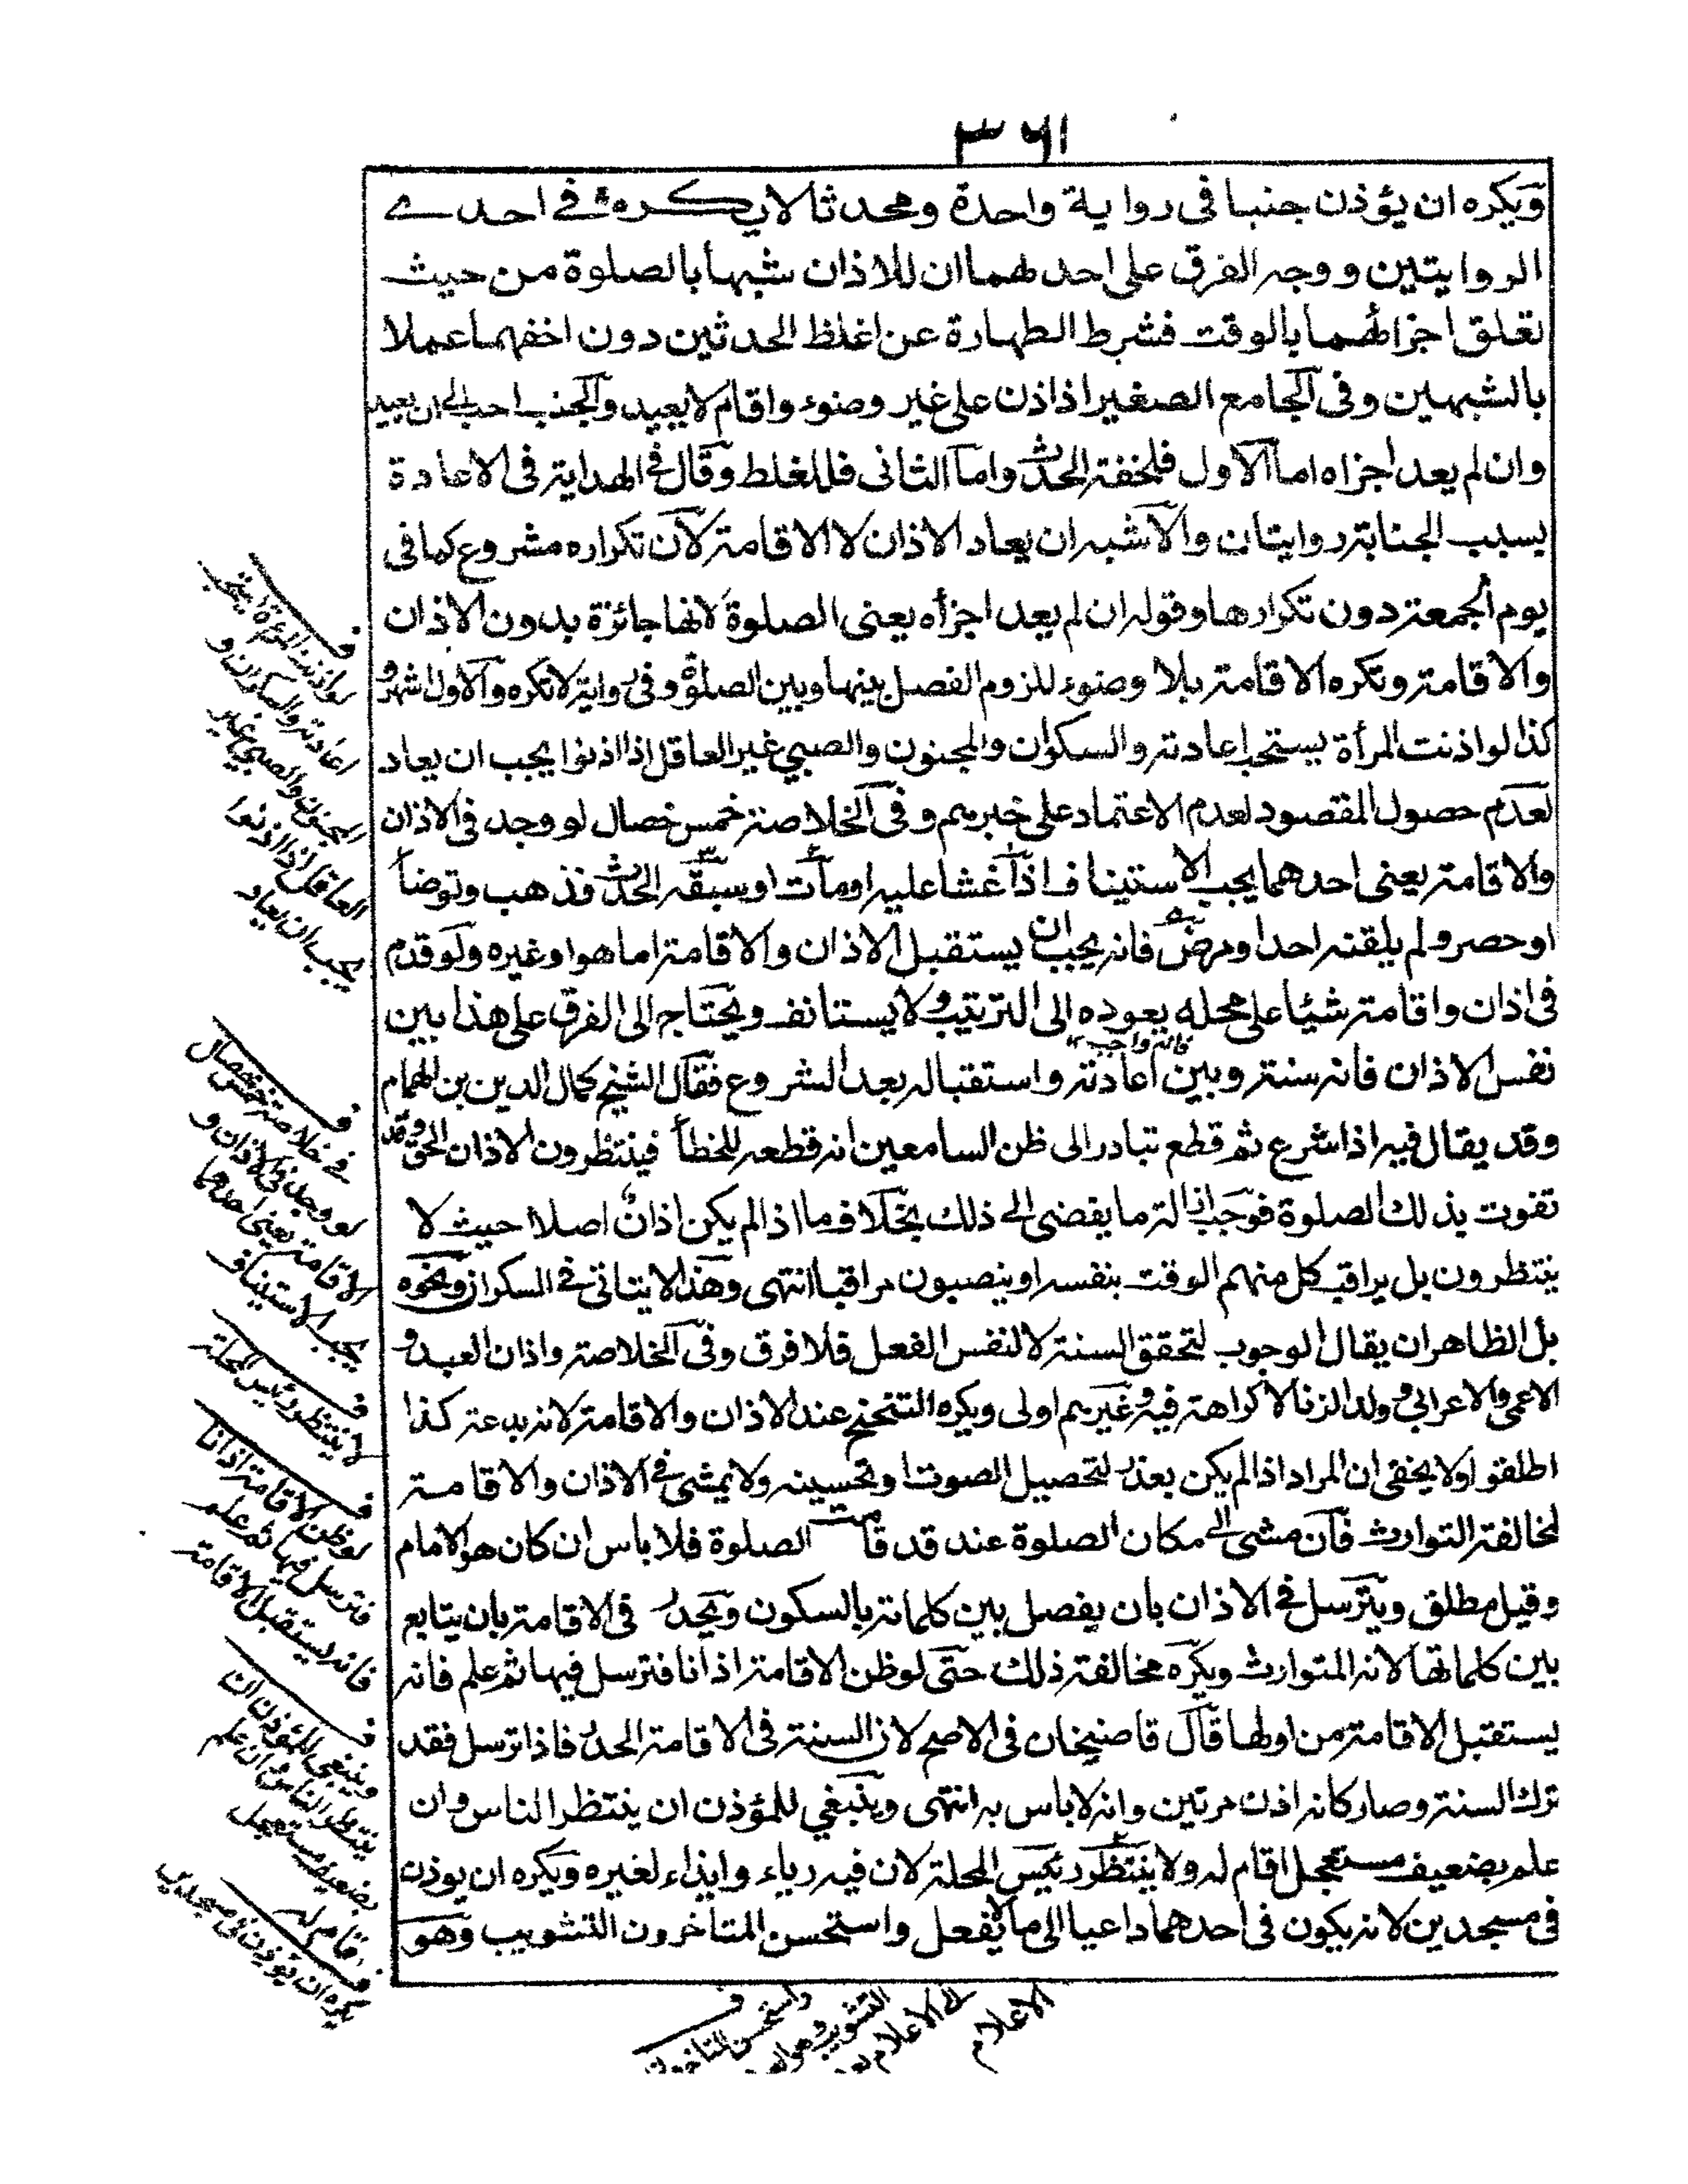 ٣٦١
ويكره ان يؤذن جنبا فى رواية واحدة ومحدثا لا يكره فى احدے
الروايتين ووجه الفرق على احدهما ان للاذان شبها بالصلوة من حيث
تعلق اجزائهما بالوقت فشرط الطهارة عن اغلظ الحدثين دون اخفهما عملا
بالشبهين وفى الجامع الصغير اذا اذن على غير وضوء واقام لا يعيد والجنب احب الى ان يعيد
وان لم يعد اجزاه اما الاول فلخفة الحدث واما الثانى فللغلط وقال فى الهداية فى الاعادة
بسبب الجنابة روايتان والاشبه ان يعاد الاذان لا الاقامة لان تكراره مشروع كما فى
يوم الجمعة دون تكرارها وقوله ان لم يعد اجزأه يعنى الصلوة لانها جائزة بدون الاذان
والاقامة وتكره الاقامة بلا وضوء للزوم الفصل بينها وبين الصلوة وفى رواية لا تكره والاول اشهر و
كذا لو اذنت المرأة يستحب اعادته والسكران والمجنون والصبي غير العاقل اذا اذنوا يجب ان يعاد
لعدم حصول المقصود لعدم الاعتماد على خبرهم وفى الخلاصة خمس خصال لو وجد فى الاذان
والاقامة يعنى احدهما يجب الاستيناف اذا غشا عليه او مات او سبقه الحدث فذهب وتوضأ
او حصر ولم يلقنه احد او مرض فيه فانه يجب ان يستقبل الاذان والاقامة اما هو او غيره ولو قدم
فى اذان واقامة شيئا على محله يعوده الى الترتيب ولا يستانف ويحتاج الى الفرق على هذا بين
فانه واجب ١٢
نفس الاذان فانه سنة وبين اعادته واستقباله بعد الشروع فقال الشيخ كمال الدين بن الهمام
وقد يقال فيه اذا شرع ثم قطع تبادر الى ظن السامعين انه قطعه للخطأ فينتظرون الاذان الحق وقد
تفوت بذلك الصلوة فوجب ازالة ما يفضى الى ذلك بخلاف ما اذا لم يكن اذان اصلا حيث لا
ينتظرون بل يراقب كل منهم الوقت بنفسه او ينصبون مراقبا انتهى وهذا لا يتاتى فى السكران ونحوه
بل الظاهر ان يقال الوجوب لتحقق السنة لا لنفس الفعل فلا فرق وفى الخلاصة واذان العبد و
الاعمى والاعرابى وولد الزنا لا كراهة فيه وغيرهم اولى ويكره التنحنح عند الاذان والاقامة لانه بدعة كذا
اطلقوا ولا يخفى ان المراد اذا لم يكن بعذر لتحصيل الصوت او تحسينه ولا يمشى فى الاذان والاقامة
لمخالفة التوارث فان مشى الى مكان الصلوة عند قد قامت الصلوة فلا باس ان كان هو الامام
وقيل مطلق ويترسل فى الاذان بان يفصل بين كلماته بالسكون ويحدر فى الاقامة بان يتابع
بين كلماتها لانه المتوارث ويكره مخالفة ذلك حتى لو ظن الاقامة اذانا فترسل فيها ثم علم فانه
يستقبل الاقامة من اولها قال قاضيخان فى الاصح لان السنة فى الاقامة الحدر فاذا ترسل فقد
ترك السنة وصار كانه اذن مرتين وانه لا باس به انتهى وينبغي للمؤذن ان ينتظر الناس وان
علم بضعيف مستعجل اقام له ولا ينتظر رئيس المحلة لان فيه رياء وايذاء لغيره ويكره ان يوذن
فى مسجدين لانه يكون فى احدهما داعيا الى ما لا يفعل واستحسن المتاخرون التثويب وهو
ف
لو اذنت المرءة يستحب
اعادته والسكران و
المجنون والصبى غير
العاقل اذا اذنوا
يجب ان يعاد
ف
فى خلاصة خمس خصال
لو وجد فى الاذان و
الاقامة يعنى احدهما
يجب الاستيناف
ف
لا ينتظر رئيس المحلة
ف
لو ظن الاقامة اذانا
فترسل فيها ثم علم
فانه يستقبل الاقامة
ف
وينبغى للمؤذن ان
ينتظر الناس وان علم
بضعيف مستعجل
اقام له
ف
يكره ان يوذن فى مسجدين
ف
واستحسن المتاخرون
التثويب وهو
الاعلام